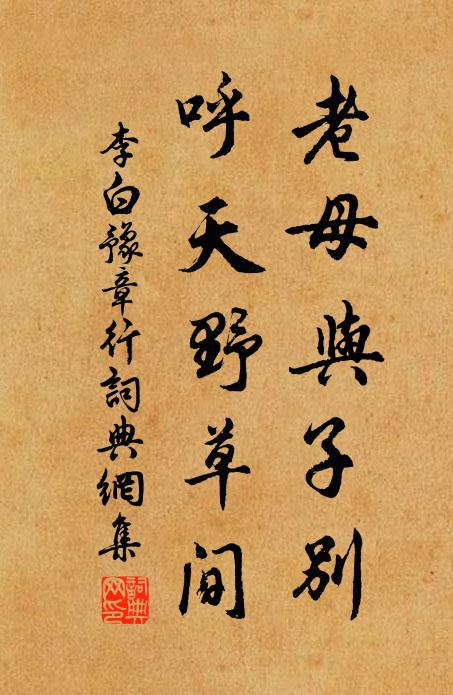 老母與子別
呼天野草間
李白豫章行詞典網集
詞典網印